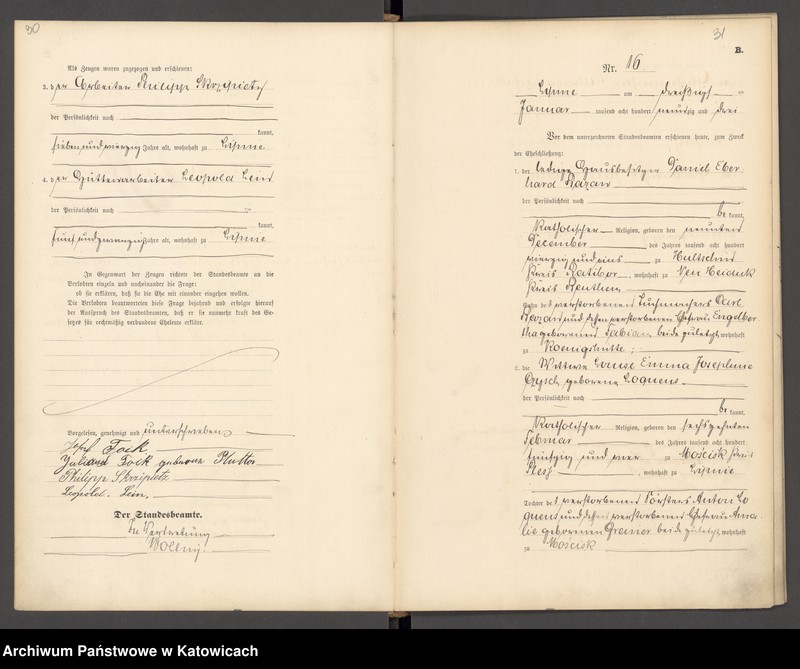 30
Als Zeugen waren zugezogen und erschienen:
3. der Arbeiter Philipp Skrzipietz
der Persönlichkeit nach
kannt,
sieben und vierzig Jahre alt, wohnhaft zu Lipine
4. der Hüttenarbeiter Leopold Lein
der Persönlichkeit nach
kannt,
fünf und zwanzig Jahre alt, wohnhaft zu Lipine
In Gegenwart der Zeugen richtete der Standesbeamte an die
Verlobten einzeln und nacheinander die Frage:
ob sie erklären, daß sie die Ehe mit einander eingehen wollen.
Die Verlobten beantworteten diese Frage bejahend und erfolgte hierauf
der Ausspruch des Standesbeamten, daß er sie nunmehr kraft des Ge-
setzes für rechtmäßig verbundene Eheleute erkläre.
Vorgelesen, genehmigt und unterschrieben
Josef Fock
Fock geborene
Philipp Skrzipietz
Leopold Lein.
Der Standesbeamte.
In Vertretung
Wolny
31
B.
Nr. 16
Lipine am dreißigsten
Januar tausend acht hundert neunzig und drei
Vor dem unterzeichneten Standesbeamten erschienen heute, zum Zweck
der Eheschließung:
1. der ledige Hausbesitzer Daniel Eber-
hard
der Persönlichkeit nach
be kannt,
katholischer Religion, geboren den neunten
December des Jahres tausend acht hundert
vierzig und eins zu Hultschin
Kreis Ratibor, wohnhaft zu Neu Heiduk
Kreis Beuthen
Sohn des verstorbenen Tuchmachers Carl
und dessen verstorbenen Ehefrau Engelber-
tha geborenen Fabian, beide zuletzt wohnhaft
zu Koenigshütte;
2. die Wittwe Louise Emma Josephine
geborene Loquens
der Persönlichkeit nach
be kannt,
katholischer Religion, geboren den sechszehnten
Februar des Jahres tausend acht hundert
fünfzig und vier zu Moscisk Kreis
Pless, wohnhaft zu Lipine
Tochter des verstorbenen Försters Anton Lo-
quens und dessen verstorbenen Ehefrau Ama-
lie geborenen Greiner beide zuletzt wohnhaft
zu Moscisk
Archiwum Państwowe w Katowicach